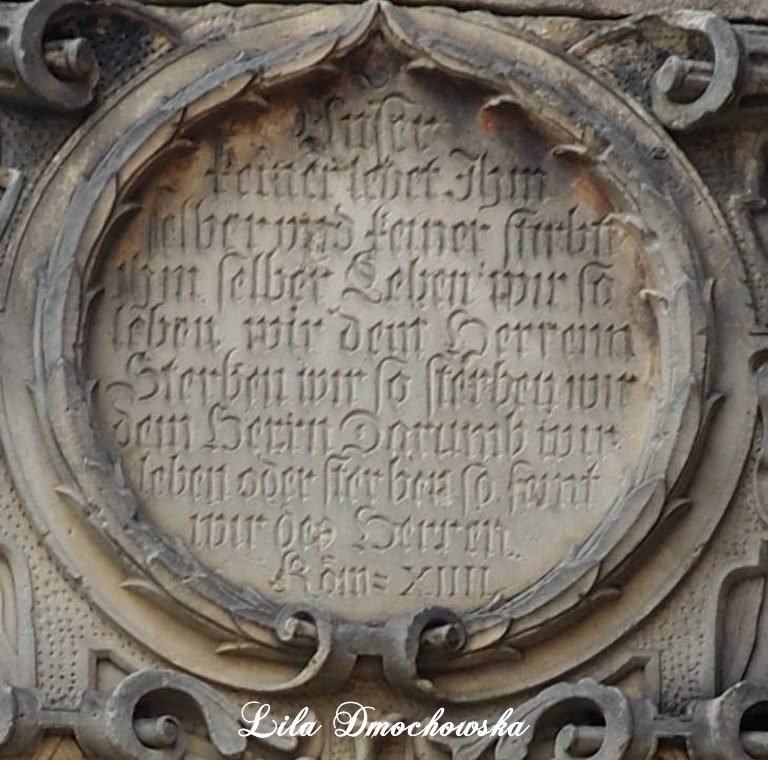 Vnser
keiner lebet Ihm
selber vnd keiner stirbtt
ihm selber Leben wir so
leben wir dem Herrenn
Sterben wir so sterben wir
dem Herrn Darumb wir
leben oder sterben so seint
wir des Herren
Röm= XIIII
Lila Dmochowska